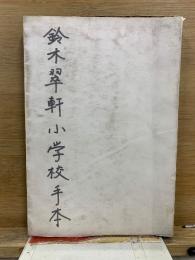 鈴木翠軒小学校手本